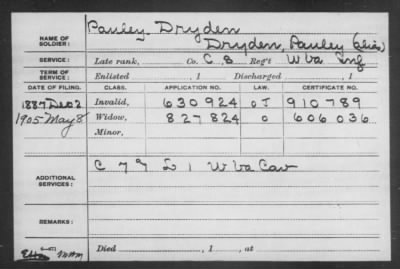 NAME OF SOLDIER: Pauley Dryden
Dryden, Pauley (alias)
SERVICE: Late rank, Co. C 8 Reg't W Va Inf
TERM OF SERVICE: Enlisted , 1 Discharged , 1
DATE OF FILING. CLASS. APPLICATION NO. LAW. CERTIFICATE NO.
1887 Dec 2 Invalid, 630924 910789
1905 May 8 Widow, 827824 O 606036
Minor,
ADDITIONAL SERVICES: C 7 & D 1 W Va Cav
REMARKS:
Died , 1 , at